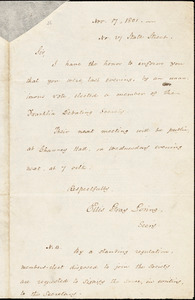 Nov. 17, 1831.
No. 27 State Street.
Sir,
I have the honor to inform you
that you were last evening, by an unan-
imous vote elected a member of the
Franklin Debating Society.
Their next meeting will be public
at Chauncy Hall, on Wednesday evening
next, at 7 o'clk.
Respectfully
Ellis Gray Loring,
Secry
N.B. By a standing regulation,
members elect disposed to join the Society
are requested to signify the same, in writing
to the Secretary.